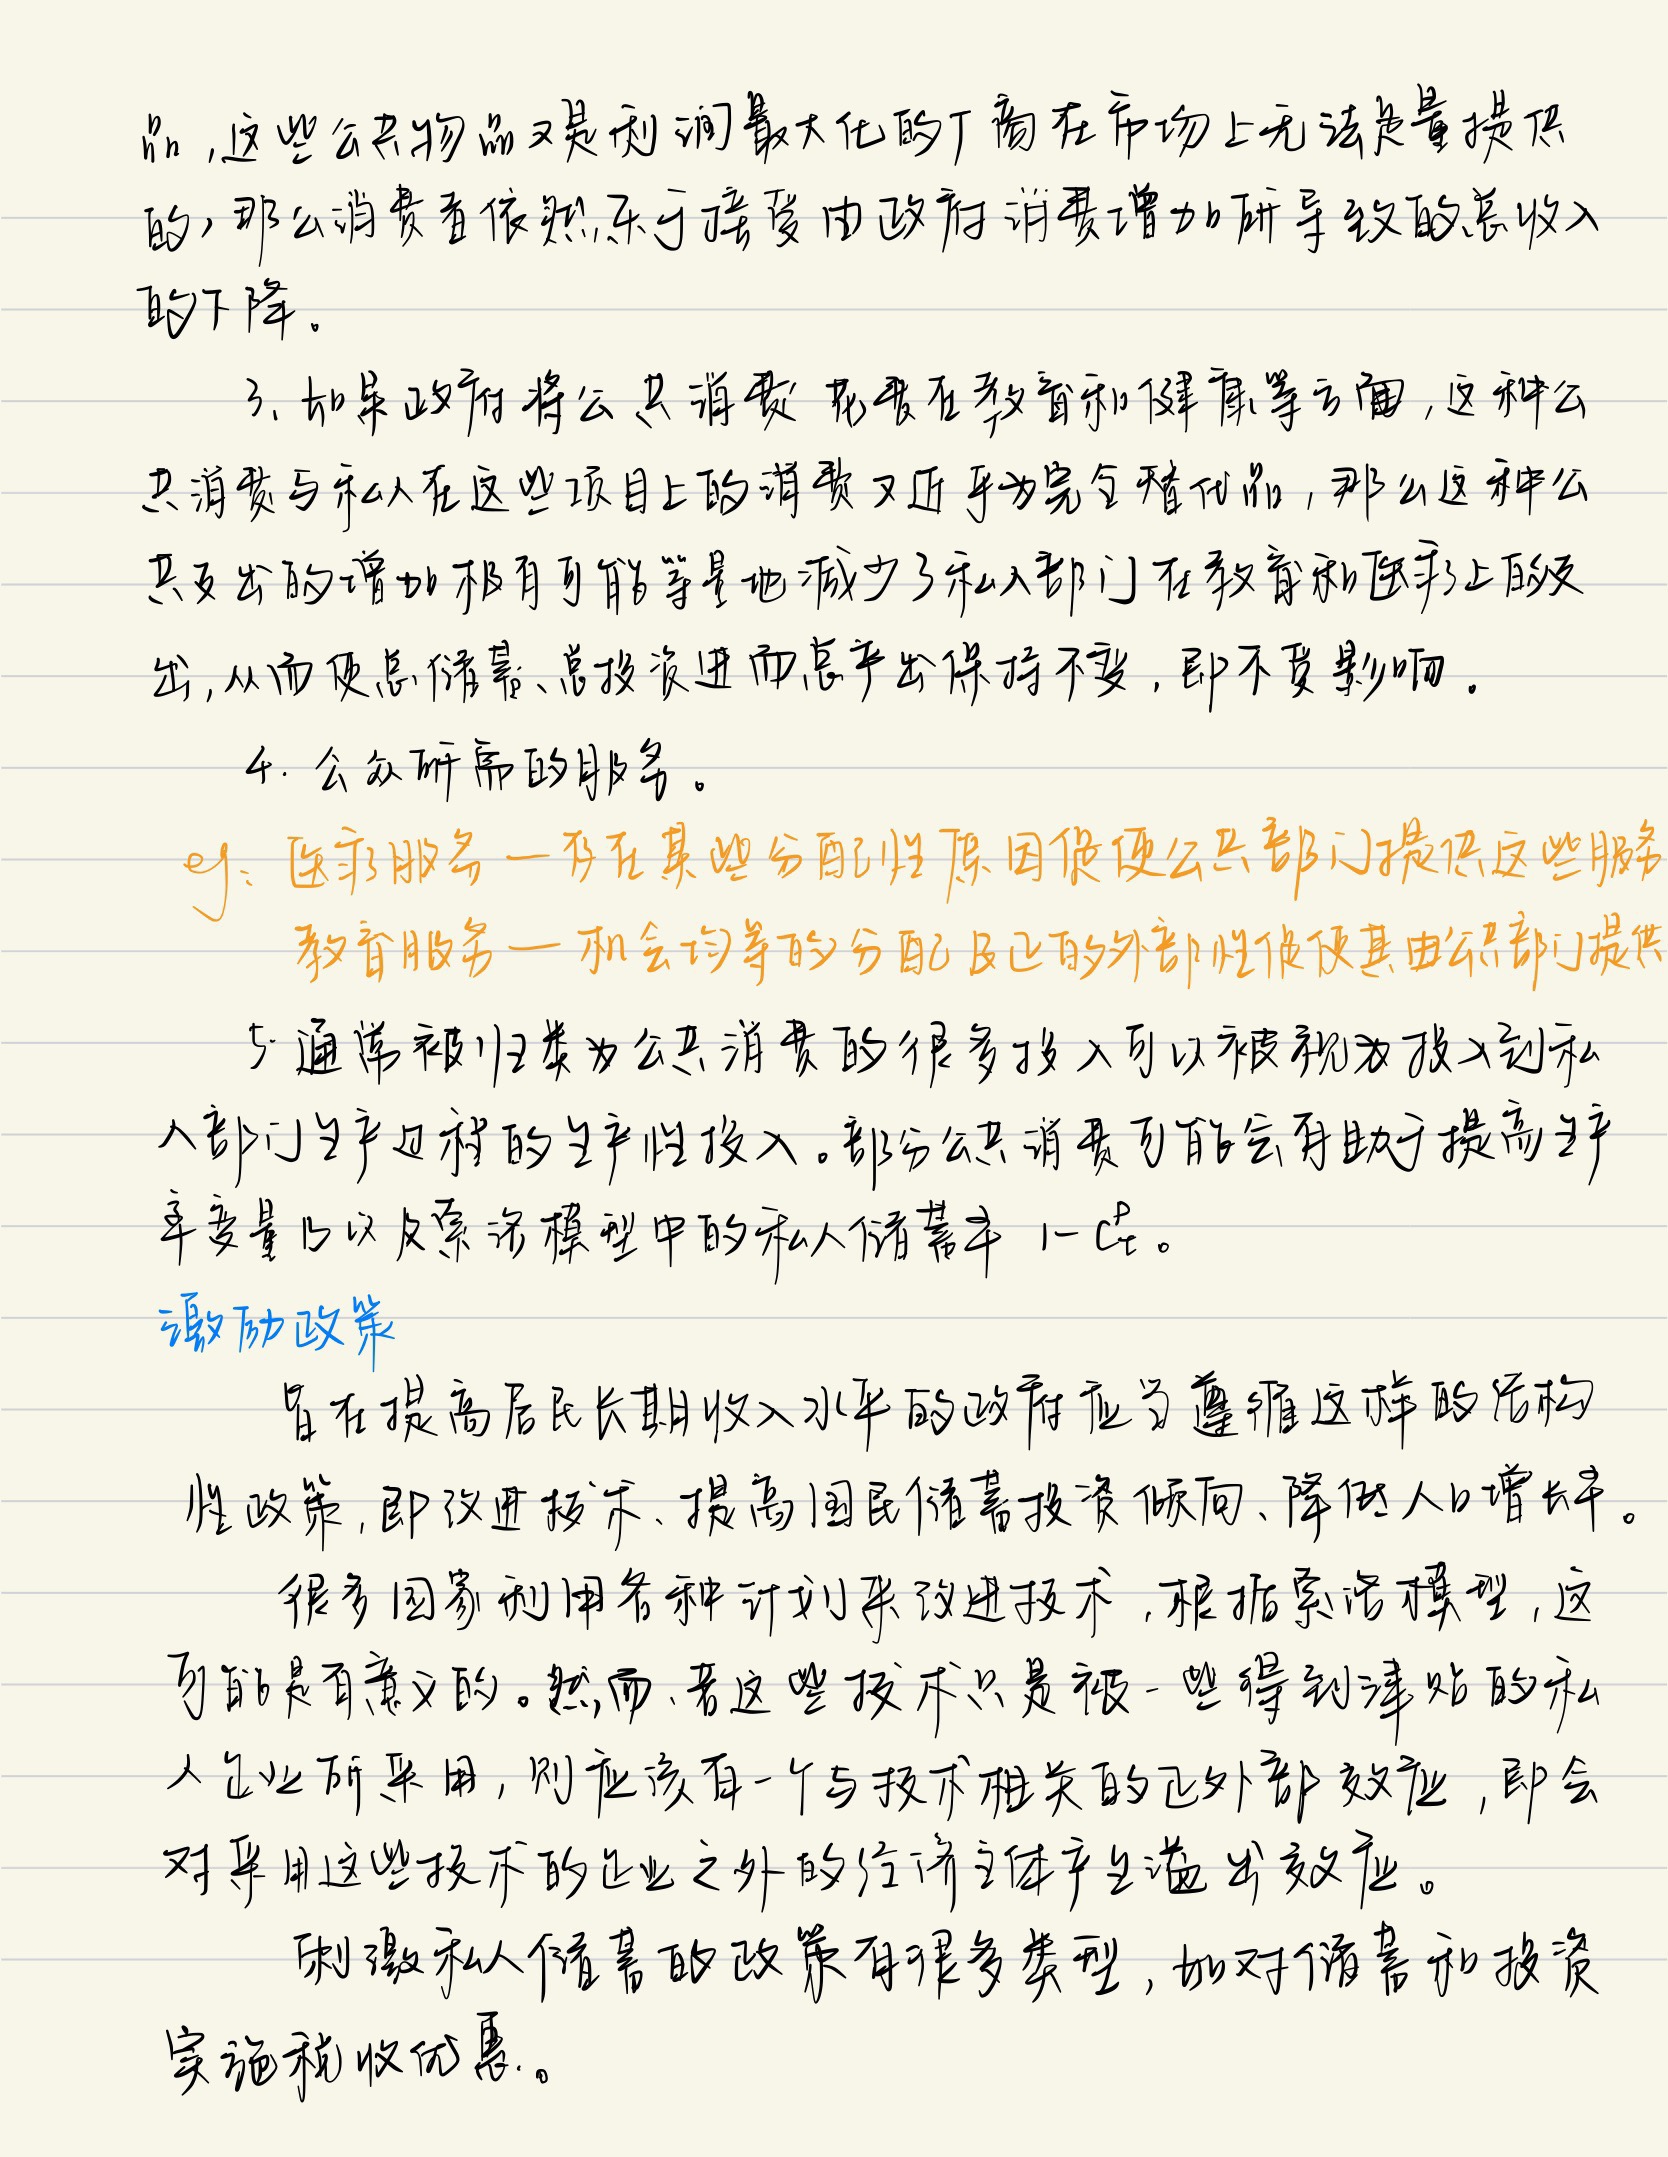 品,这些公共物品又是利润最大化的厂商在市场上无法足量提供
的,那么消费者依然乐于接受由政府消费增加所导致的总收入
的下降。
3、如果政府将公共消费花费在教育和健康等方面,这种公
共消费与私人在这些项目上的消费又近乎为完全替代品,那么这种公
共支出的增加极有可能等量地减少了私人部门在教育和医疗上的支
出,从而使总储蓄、总投资进而总产出保持不变,即不受影响。
4. 公众所需的服务。
eg: 医疗服务—存在某些分配性原因促使公共部门提供这些服务
教育服务—机会均等的分配及正的外部性促使其由公共部门提供
5. 通常被归类为公共消费的很多投入可以被视为投入到私
人部门生产过程的生产性投入。部分公共消费可能会有助于提高生产
率变量B以及索洛模型中的私人储蓄率 1-Cᵖₜ。
激励政策
旨在提高居民长期收入水平的政府应当遵循这样的结构
性政策,即改进技术、提高国民储蓄投资倾向、降低人口增长率。
很多国家利用各种计划来改进技术,根据索洛模型,这
可能是有意义的。然而,若这些技术只是被一些得到津贴的私
人企业所采用,则应该有一个与技术相关的正外部效应,即会
对采用这些技术的企业之外的经济主体产生溢出效应。
刺激私人储蓄的政策有很多类型,如对储蓄和投资
实施税收优惠。